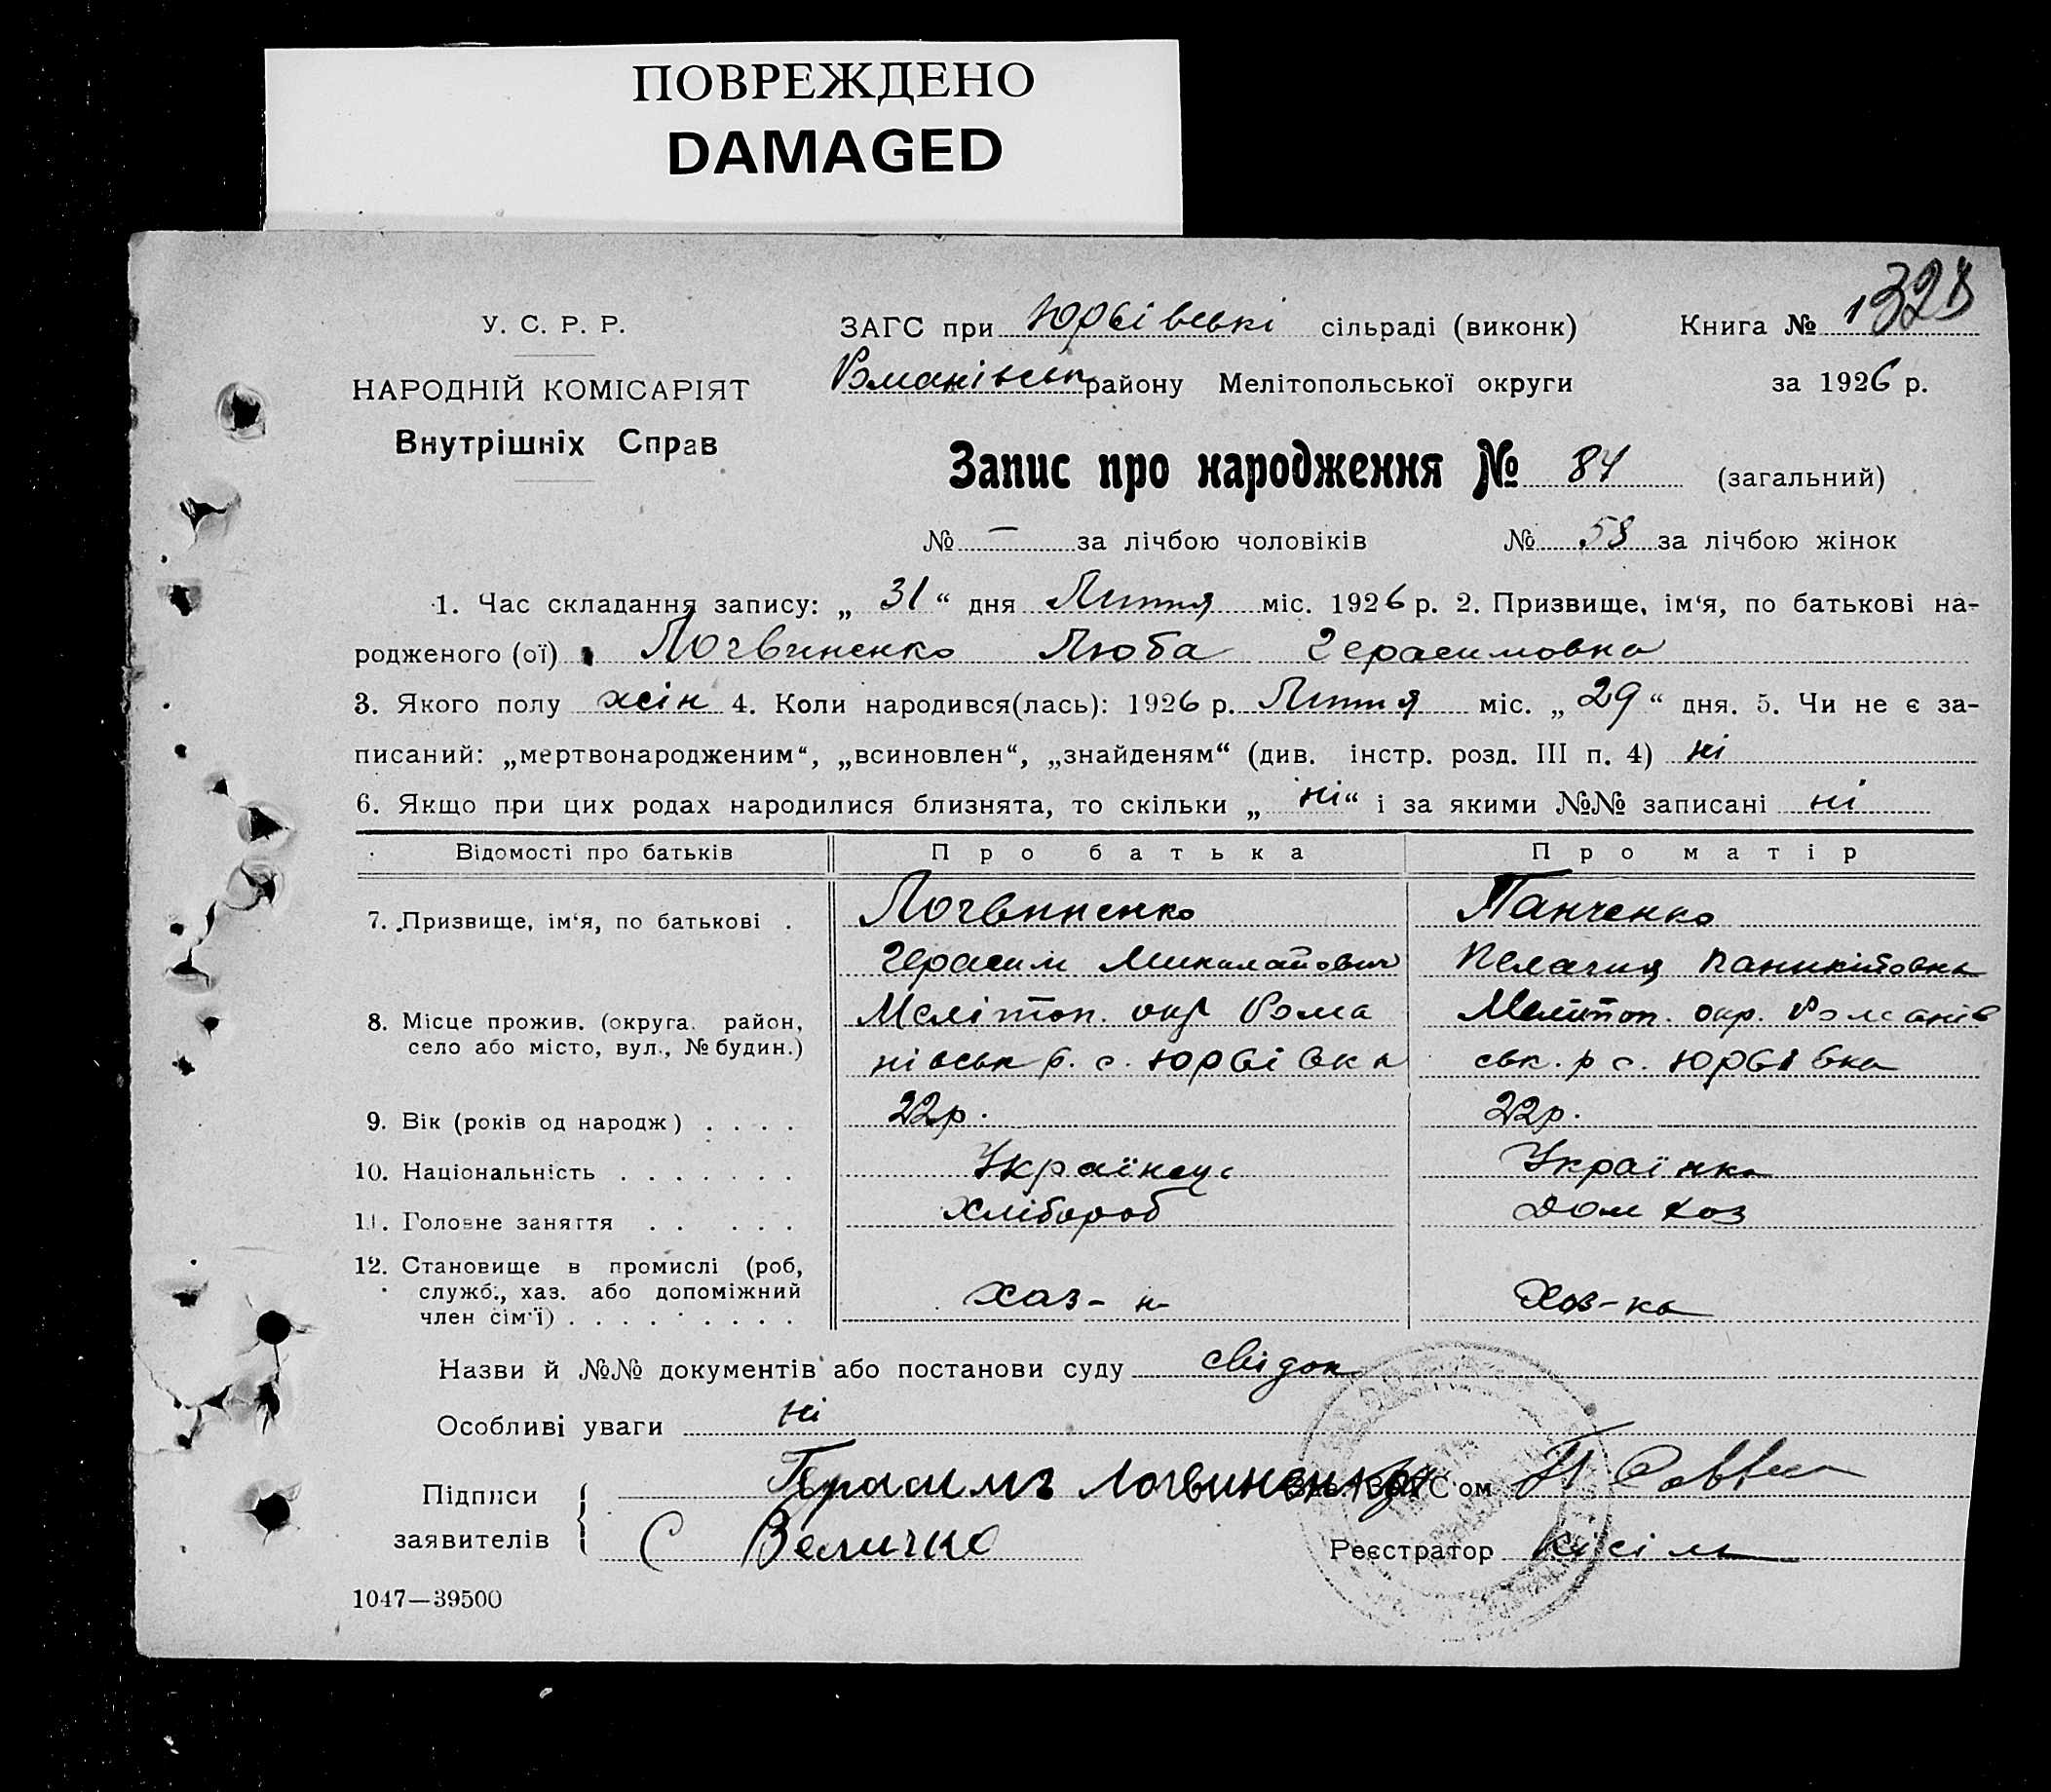 ПОВРЕЖДЕНО
DAMAGED
У. С. Р. Р.
НАРОДНІЙ КОМІСАРІЯТ
Внутрішніх Справ
ЗАГС при Юрьівські сільраді (виконк) Книга № 1328
району Мелітопольської округи за 1926 р.
Запис про народження № 84 (загальний)
№ — за лічбою чоловіків № 58 за лічбою жінок
1. Час складання запису: „ 31 “ дня Липня міс. 1926 р. 2. Призвище, ім‘я, по батькові на-
родженого (ої) Логвиненко Люба Герасимовна
3. Якого полу жін 4. Коли народився(лась): 1926 р. Липня міс. „ 29 “ дня. 5. Чи не є за-
писаний: „мертвонародженим“, „всиновлен“, „знайденям“ (див. інстр. розд. III п. 4) ні
6. Якщо при цих родах народилися близнята, то скільки „ ні “ і за якими №№ записані ні
Відомості про батьків Про батька Про матір
7. Призвище, ім‘я, по батькові . Логвиненко Панченко
Герасим Миколайович Пелагия
8. Місце прожив. (округа. район, Мелітоп. окр Рома Мелітоп. окр. Романів
село або місто, вул., № будин.) нівськ р. с. Юрьівка ськ. р с. Юрьівка
9. Вік (років од народж) . . . . 22р. 22р.
10. Національність . . . . . . . Українець Українка
11. Головне заняття . . . . . Хлібороб Дом хоз
12. Становище в промислі (роб,
служб., хаз. або допоміжний хаз-н Хоз-ка
член сім‘ї) . . . . . . . . .
Назви й №№ документів або постанови суду свідок
Особливі уваги ні
Підписи Герасимъ Логвиненко ЗАГС‘ом
заявителів С Величко Реєстратор
1047—39500